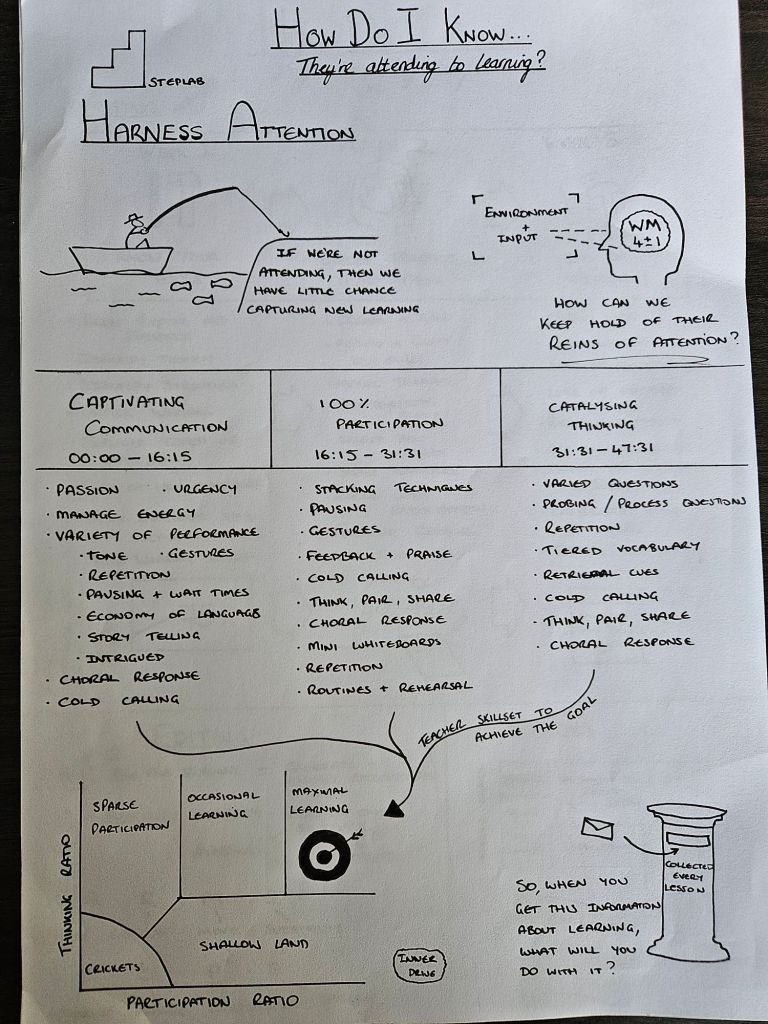 How Do I Know...
They're attending to learning?
STEPLAB
HARNESS ATTENTION
IF WE'RE NOT
ATTENDING, THEN WE
HAVE LITTLE CHANCE
CAPTURING NEW LEARNING
ENVIRONMENT
+
INPUT
WM
4±1
HOW CAN WE
KEEP HOLD OF THEIR
REINS OF ATTENTION?
CAPTIVATING
COMMUNICATION
00:00 – 16:15
100%
PARTICIPATION
16:15 – 31:31
CATALYSING
THINKING
31:31 – 47:31
· PASSION · URGENCY
· MANAGE ENERGY
· VARIETY OF PERFORMANCE
· TONE · GESTURES
· REPETITION
· PAUSING + WAIT TIMES
· ECONOMY OF LANGUAGE
· STORY TELLING
· INTRIGUED
· CHORAL RESPONSE
· COLD CALLING
· STACKING TECHNIQUES
· PAUSING
· GESTURES
· FEEDBACK + PRAISE
· COLD CALLING
· THINK, PAIR, SHARE
· CHORAL RESPONSE
· MINI WHITEBOARDS
· REPETITION
· ROUTINES + REHEARSAL
· VARIED QUESTIONS
· PROBING / PROCESS QUESTIONS
· REPETITION
· TIERED VOCABULARY
· RETRIEVAL CUES
· COLD CALLING
· THINK, PAIR, SHARE
· CHORAL RESPONSE
TEACHER SKILLSET TO
ACHIEVE THE GOAL
THINKING RATIO
SPARSE
PARTICIPATION
OCCASIONAL
LEARNING
MAXIMAL
LEARNING
SHALLOW LAND
CRICKETS
PARTICIPATION RATIO
INNER
DRIVE
SO, WHEN YOU
GET THIS INFORMATION
ABOUT LEARNING,
WHAT WILL YOU
DO WITH IT?
COLLECTED
EVERY
LESSON